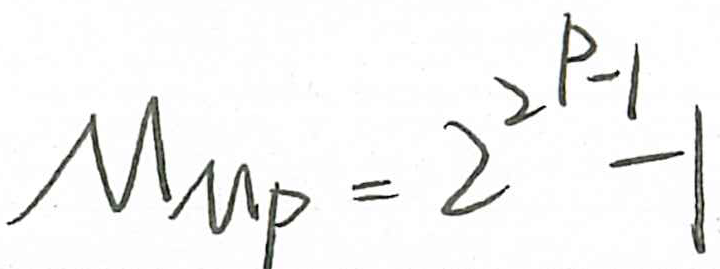 $M_{M_p} = 2^{2^p-1}-1$